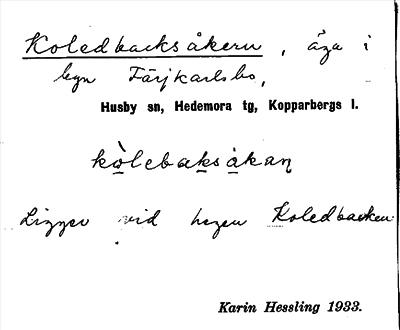 Koledbacksåkern, åga i
byn Färjkarlsbo,
Husby sn, Hedemora tg, Kopparbergs l.
kòlebaksåkaņ
Ligger vid hagen Koledbacken
Karin Hessling 1933.